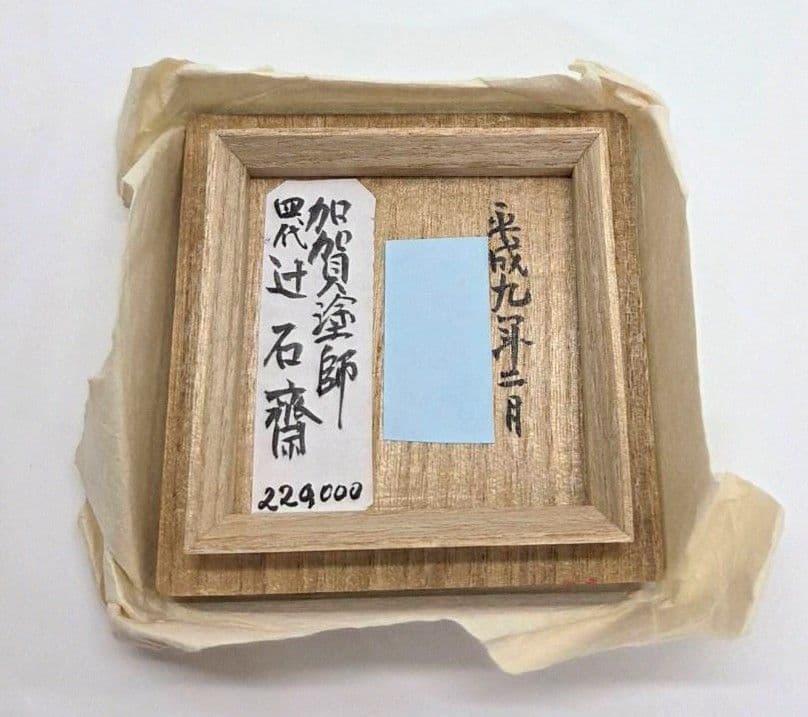 平成九年二月
加賀塗師
四代 辻 石齋
229000